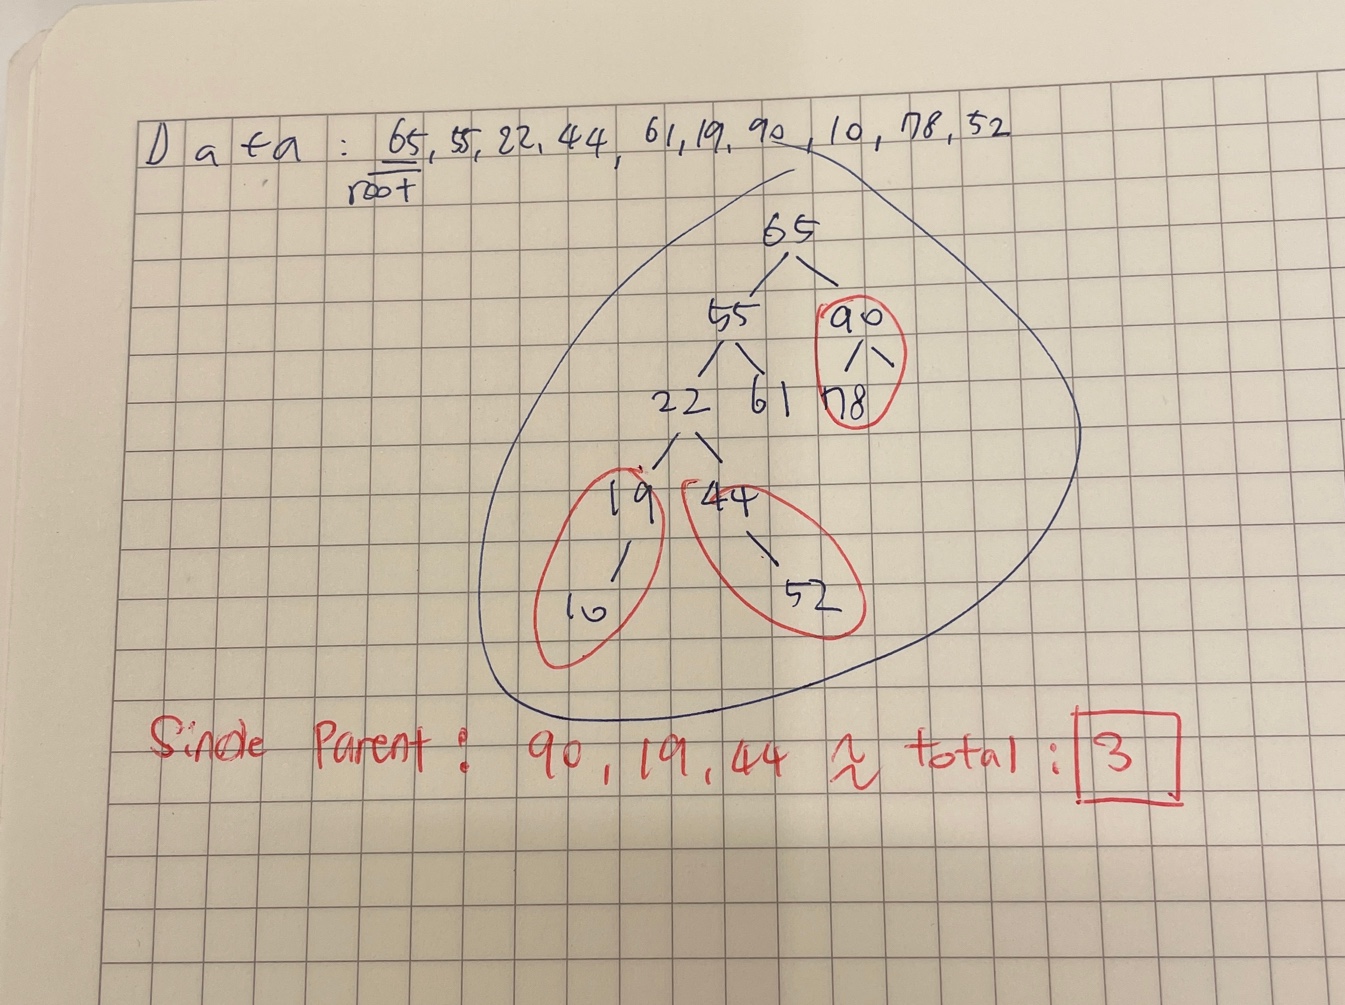 Data : 65, 55, 22, 44, 61, 19, 90, 10, 78, 52
root
65
55 90
22 61 78
19 44
10 52
Single Parent : 90, 19, 44 ≈ total : 3